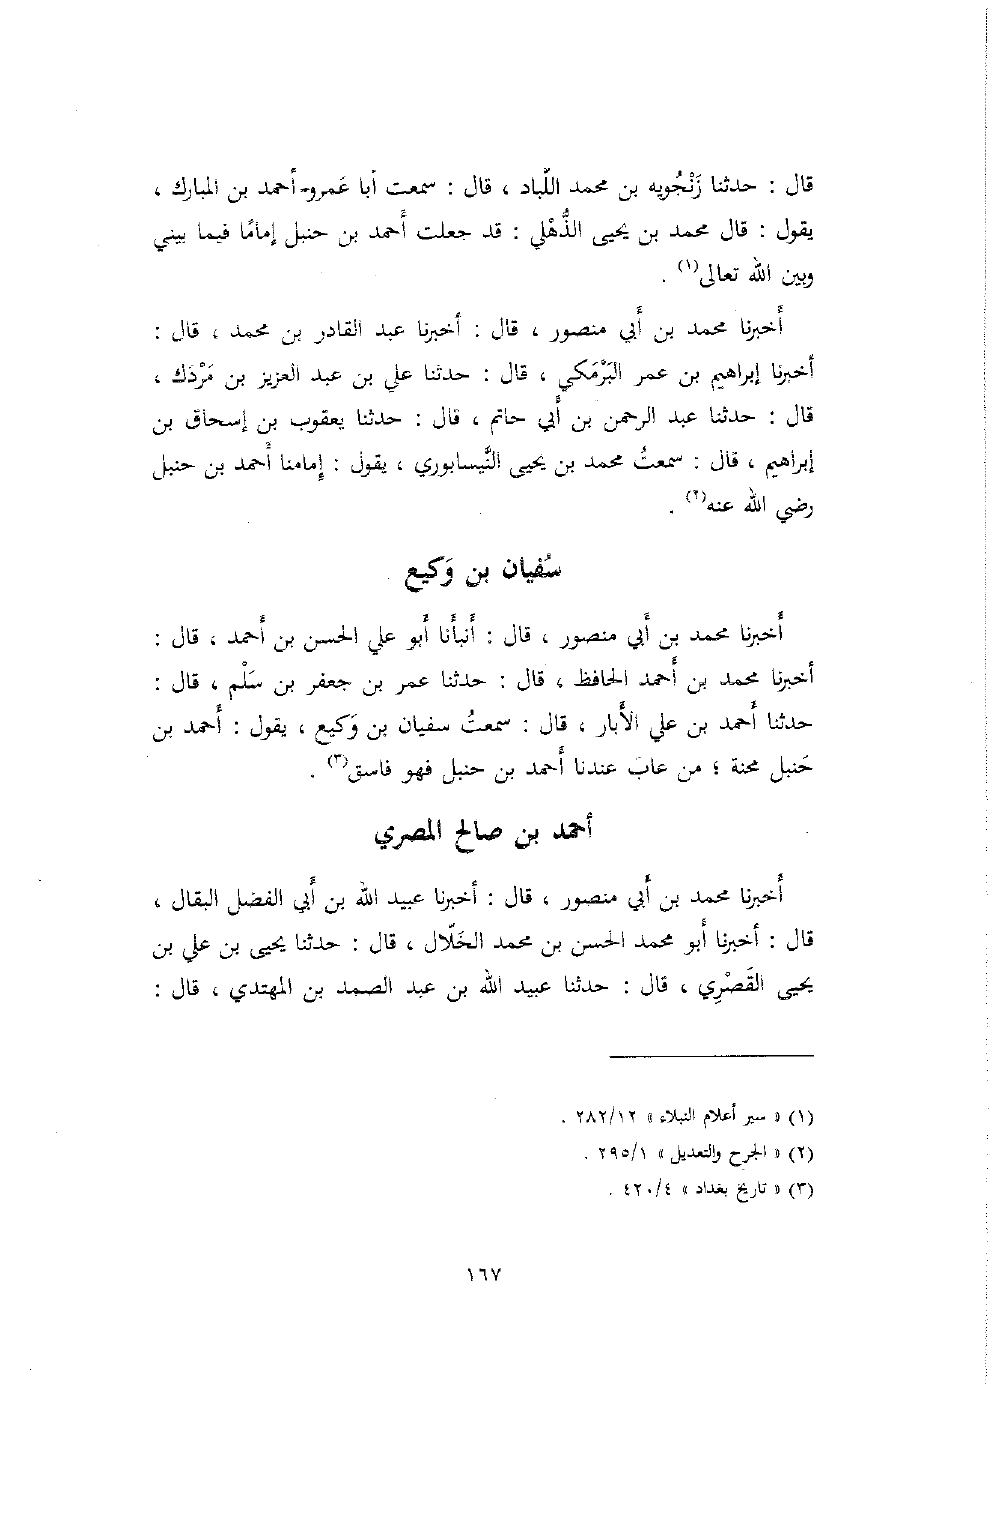 قال : حدثنا زَنْجُويه بن محمد اللّباد ، قال : سمعت أبا عَمرو أحمد بن المبارك ،
يقول : قال محمد بن يحيى الذُّهْلي : قد جعلت أَحمد بن حنبل إمامًا فيما بيني
وبين الله تعالى(١) .
أَخبرنا محمد بن أَبي منصور ، قال : أخبرنا عبد القادر بن محمد ، قال :
أخبرنا إبراهيم بن عمر البَرْمَكي ، قال : حدثنا علي بن عبد العزيز بن مَرْدَك ،
قال : حدثنا عبد الرحمن بن أَبي حاتم ، قال : حدثنا يعقوب بن إسحاق بن
إبراهيم ، قال : سمعتُ محمد بن يحيى النَّيسابوري ، يقول : إِمامنا أَحمد بن حنبل
رضي الله عنه(٢) .
سُفيان بن وَكيع
أَخبرنا محمد بن أَبي منصور ، قال : أَنبأَنا أَبو علي الحسن بن أَحمد ، قال :
أخبرنا محمد بن أَحمد الحافظ ، قال : حدثنا عمر بن جعفر بن سَلْم ، قال :
حدثنا أَحمد بن علي الأَبار ، قال : سمعتُ سفيان بن وَكيع ، يقول : أَحمد بن
حَنبل محنة ؛ من عابَ عندنا أَحمد بن حنبل فهو فاسق(٣) .
أحمد بن صالح المصري
أَخبرنا محمد بن أَبي منصور ، قال : أخبرنا عبيد الله بن أَبي الفضل البقال ،
قال : أخبرنا أَبو محمد الحسن بن محمد الخَلّال ، قال : حدثنا يحيى بن علي بن
يحيى القَصْرِي ، قال : حدثنا عبيد الله بن عبد الصمد بن المهتدي ، قال :
(١) « سير أعلام النبلاء » ٢٨٢/١٢ .
(٢) « الجرح والتعديل » ٢٩٥/١ .
(٣) « تاريخ بغداد » ٤٢٠/٤ .
١٦٧